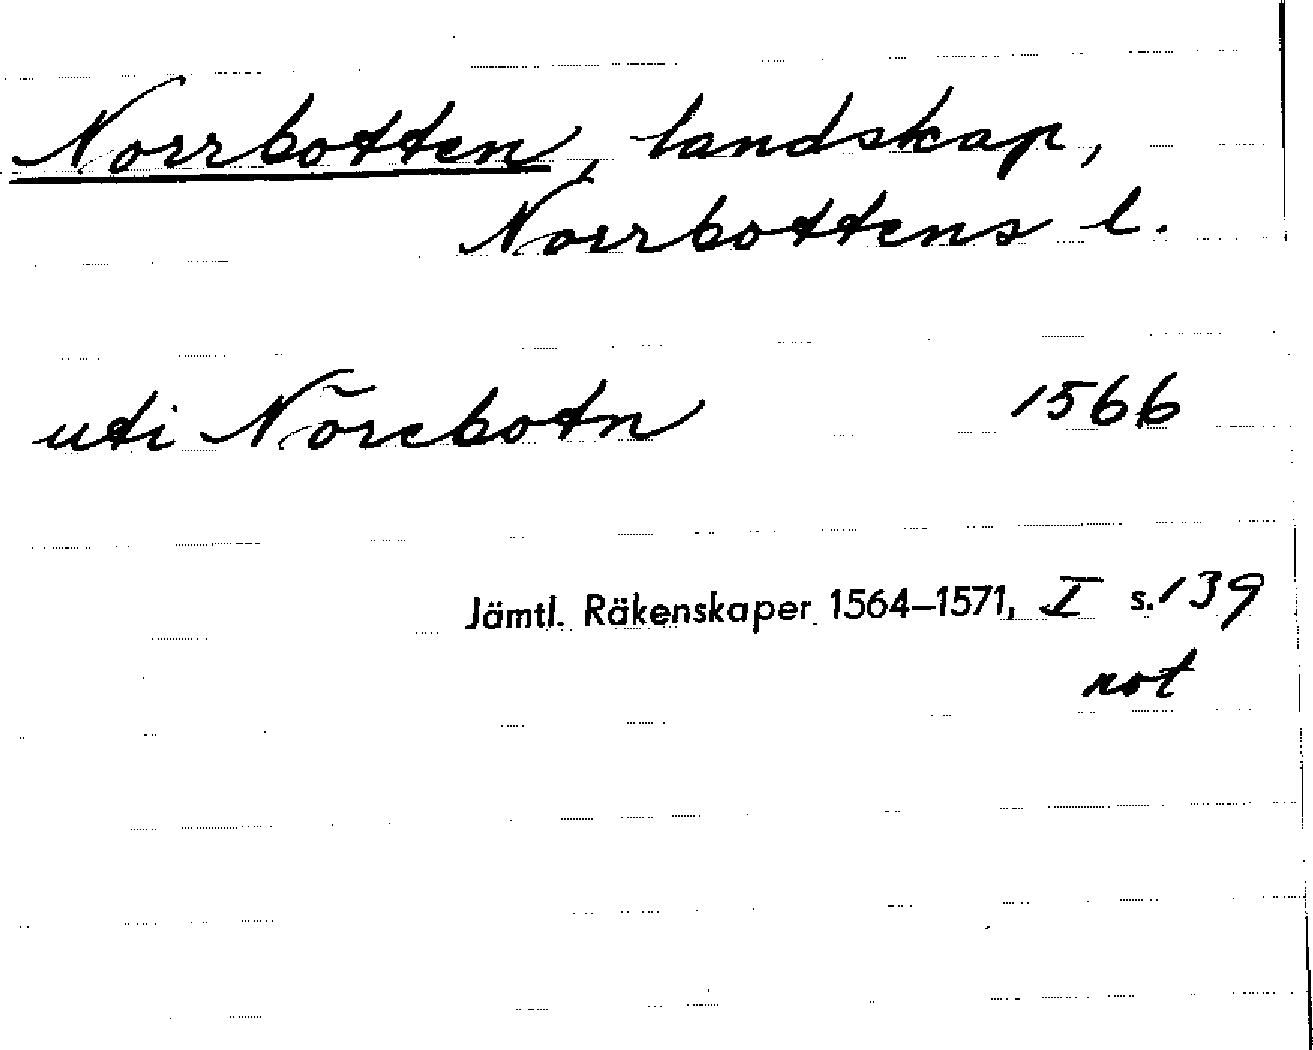 Norrbotten, landskap,
Norrbottens l.
uti Nõrebotn 1566
Jämtl. Räkenskaper 1564–1571, I s. 139
not